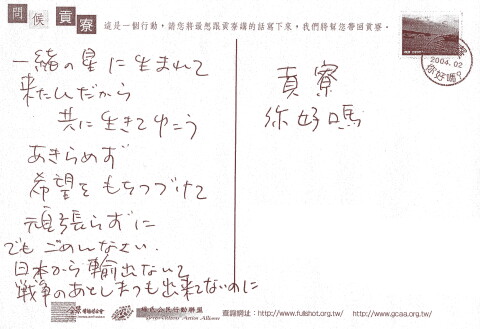 問候貢寮
這是一個行動，請您將最想跟貢寮講的話寫下來，我們將幫您帶回貢寮。
2004.02
你好嗎?
一緒の星に生まれて
来たんだから
共に生きてゆこう
あきらめず
希望をもちつづけて
頑張らずに
でもごめんなさい.
日本から輸出ないて
戦争のあとしまつも出来てないのに
貢寮
你好嗎
綠色公民行動聯盟
Green Citizens' Action Alliance
查詢網址：http://www.fullshot.org.tw/ http://www.gcaa.org.tw/